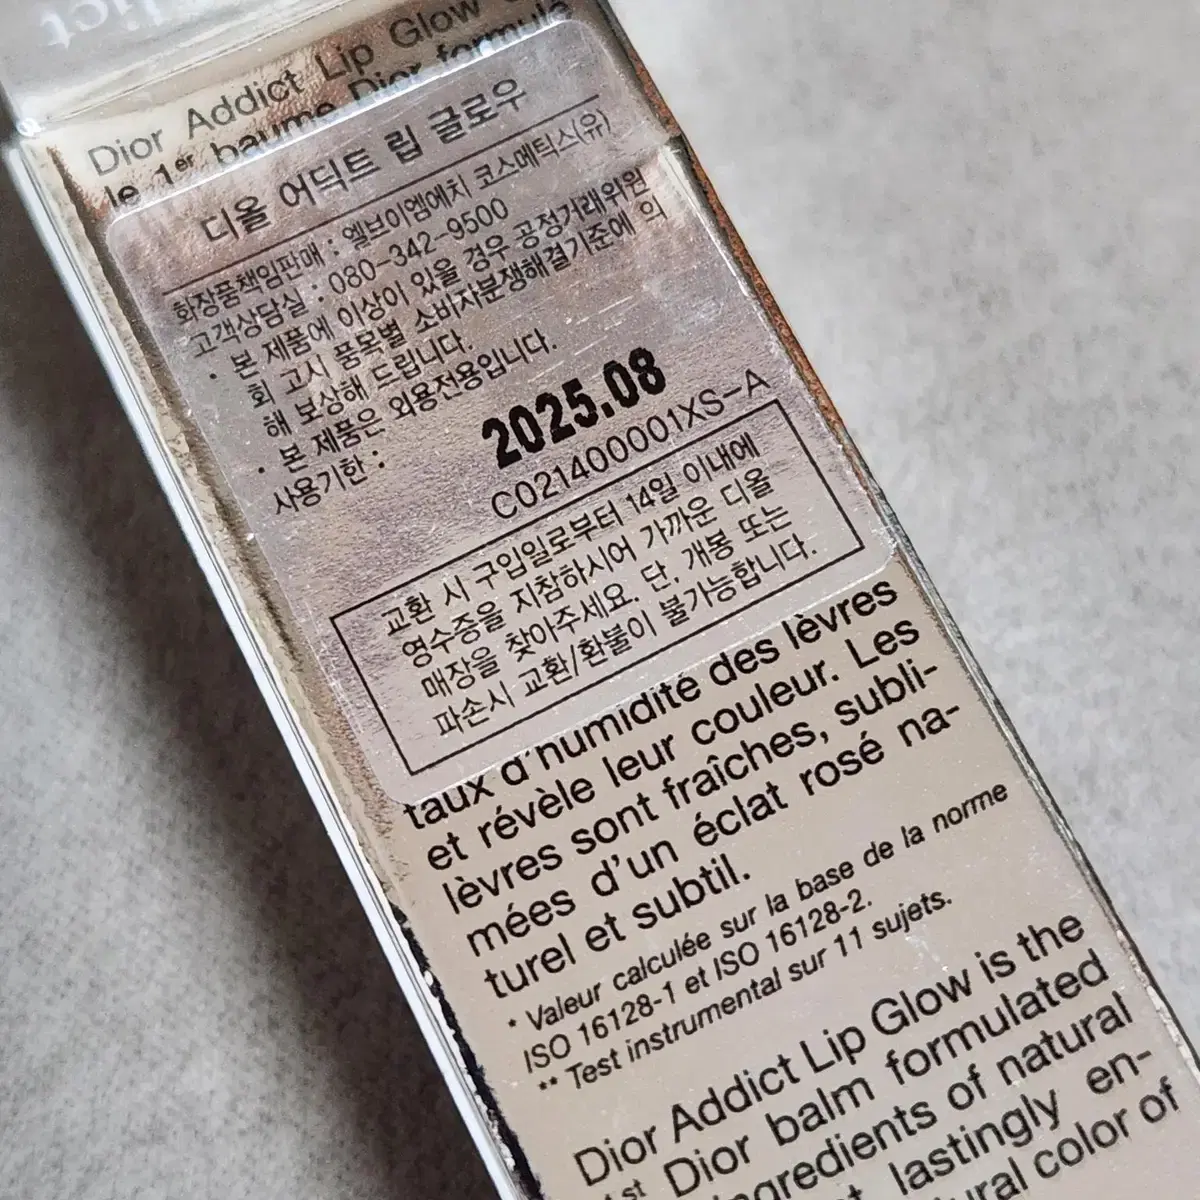 Dior Addict Lip Glow
le 1er baume Dior formulé
디올 어딕트 립 글로우
화장품책임판매 : 엘브이엠에치 코스메틱스(유)
고객상담실 : 080-342-9500
· 본 제품에 이상이 있을 경우 공정거래위원
회 고시 품목별 소비자분쟁해결기준에 의
해 보상해 드립니다.
· 본 제품은 외용전용입니다.
사용기한 : 2025.08
C021400001XS-A
교환 시 구입일로부터 14일 이내에
영수증을 지참하시어 가까운 디올
매장을 찾아주세요. 단, 개봉 또는
파손시 교환/환불이 불가능합니다.
taux d'humidité des lèvres
et révèle leur couleur. Les
lèvres sont fraîches, subli-
mées d'un éclat rosé na-
turel et subtil.
* Valeur calculée sur la base de la norme
ISO 16128-1 et ISO 16128-2.
** Test instrumental sur 11 sujets.
Dior Addict Lip Glow is the
1st Dior balm formulated
ingredients of natural
lastingly en-
color of